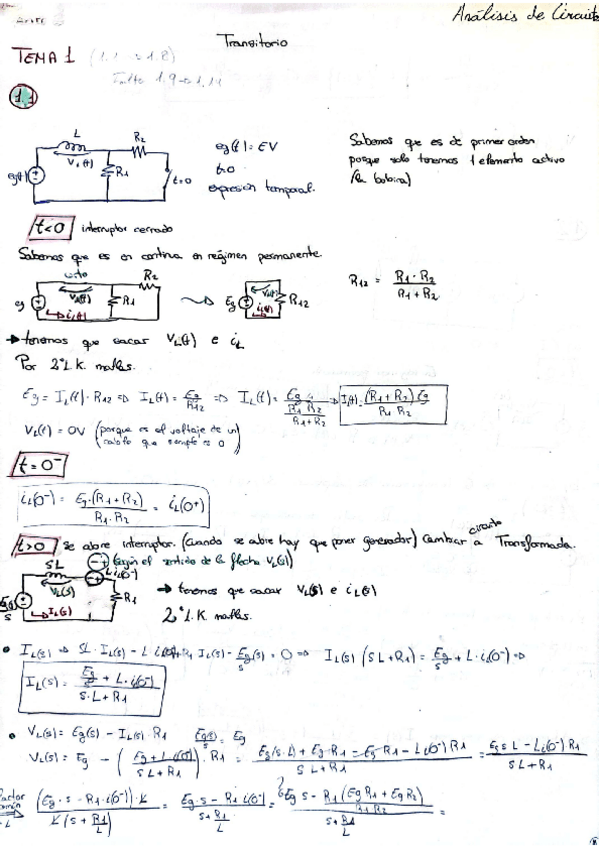 Análisis de Circuitos
Transitorio
TEMA 1 (1.1 → 1.8)
Falta 1.9 → 1.14
1.1
L
R2
VL(t)
R1
t=0
eg(t)
eg(t) = EV
t=0
expresión temporal.
Sabemos que es de primer orden
porque solo tenemos 1 elemento activo
(la bobina)
t<0 interruptor cerrado
Sabemos que es en continua en régimen permanente.
R2
eg
VL(t)
R1
iL(t)
Eg
VL(t)
iL(t)
R12
R12 = R1 · R2 / R1 + R2
→ tenemos que sacar VL(t) e iL
Por 2ª L.K. mallas.
Eg = IL(t) · R12 => IL(t) = Eg / R12 => IL(t) = Eg / (R1 R2 / R1 + R2) => IL(t) = (R1 + R2) Eg / R1 R2
VL(t) = 0V (porque es el voltaje de un
cable que siempre es 0)
t = 0⁻
iL(0⁻) = Eg·(R1 + R2) / R1 · R2 = iL(0⁺)
t>0 Se abre interruptor. (Cuando se abre hay que poner generador) Cambiar a circuito Transformada.
(según el sentido de la flecha VL(t))
SL
L·iL(0⁻)
VL(s)
R1
IL(s)
Eg(s) / s
→ tenemos que sacar VL(s) e iL(s)
2ª L.K. mallas.
• IL(s) => SL · IL(s) - L · i(0⁻) + R1 IL(s) - Eg(s) / s = 0 => IL(s) (SL + R1) = Eg / s + L · iL(0⁻) =>
IL(s) = (Eg / s + L · i(0⁻)) / (S·L + R1)
• VL(s) = Eg(s) - IL(s) · R1
Eg(s) / s = Eg
VL(s) = Eg - (Eg + L i(0⁻) / SL + R1) · R1 = Eg(s·L) + Eg·R1 - Eg R1 - Li(0⁻) R1 / SL + R1 = Eg s L - Li(0⁻) R1 / SL + R1
Factor común L => (Eg · s - R1 · i(0⁻)) · L / L (s + R1 / L) = Eg · s - R1 i(0⁻) / s + R1 / L = Eg s - R1 (Eg R1 + Eg R2) / R1 R2 / s + R1 / L =